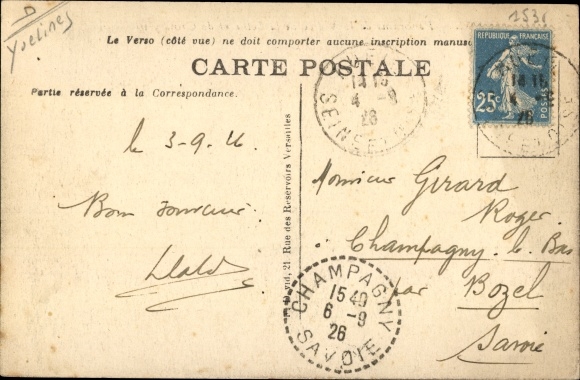 D
Yvelines
1531
Le Verso (côté vue) ne doit comporter aucune inscription manusc
CARTE POSTALE
Partie réservée à la Correspondance.
RÉPUBLIQUE FRANÇAISE
25c
POSTES
14 15
4 -9
26
SEINE
14 15
26
le 3-9-26
Bon Souvenir
Monsieur Girard
Roger
Champagny le Bas
par Bozel
Savoie
21 Rue des Réservoirs Versailles
CHAMPAGNY
15 40
6 -9
26
SAVOIE